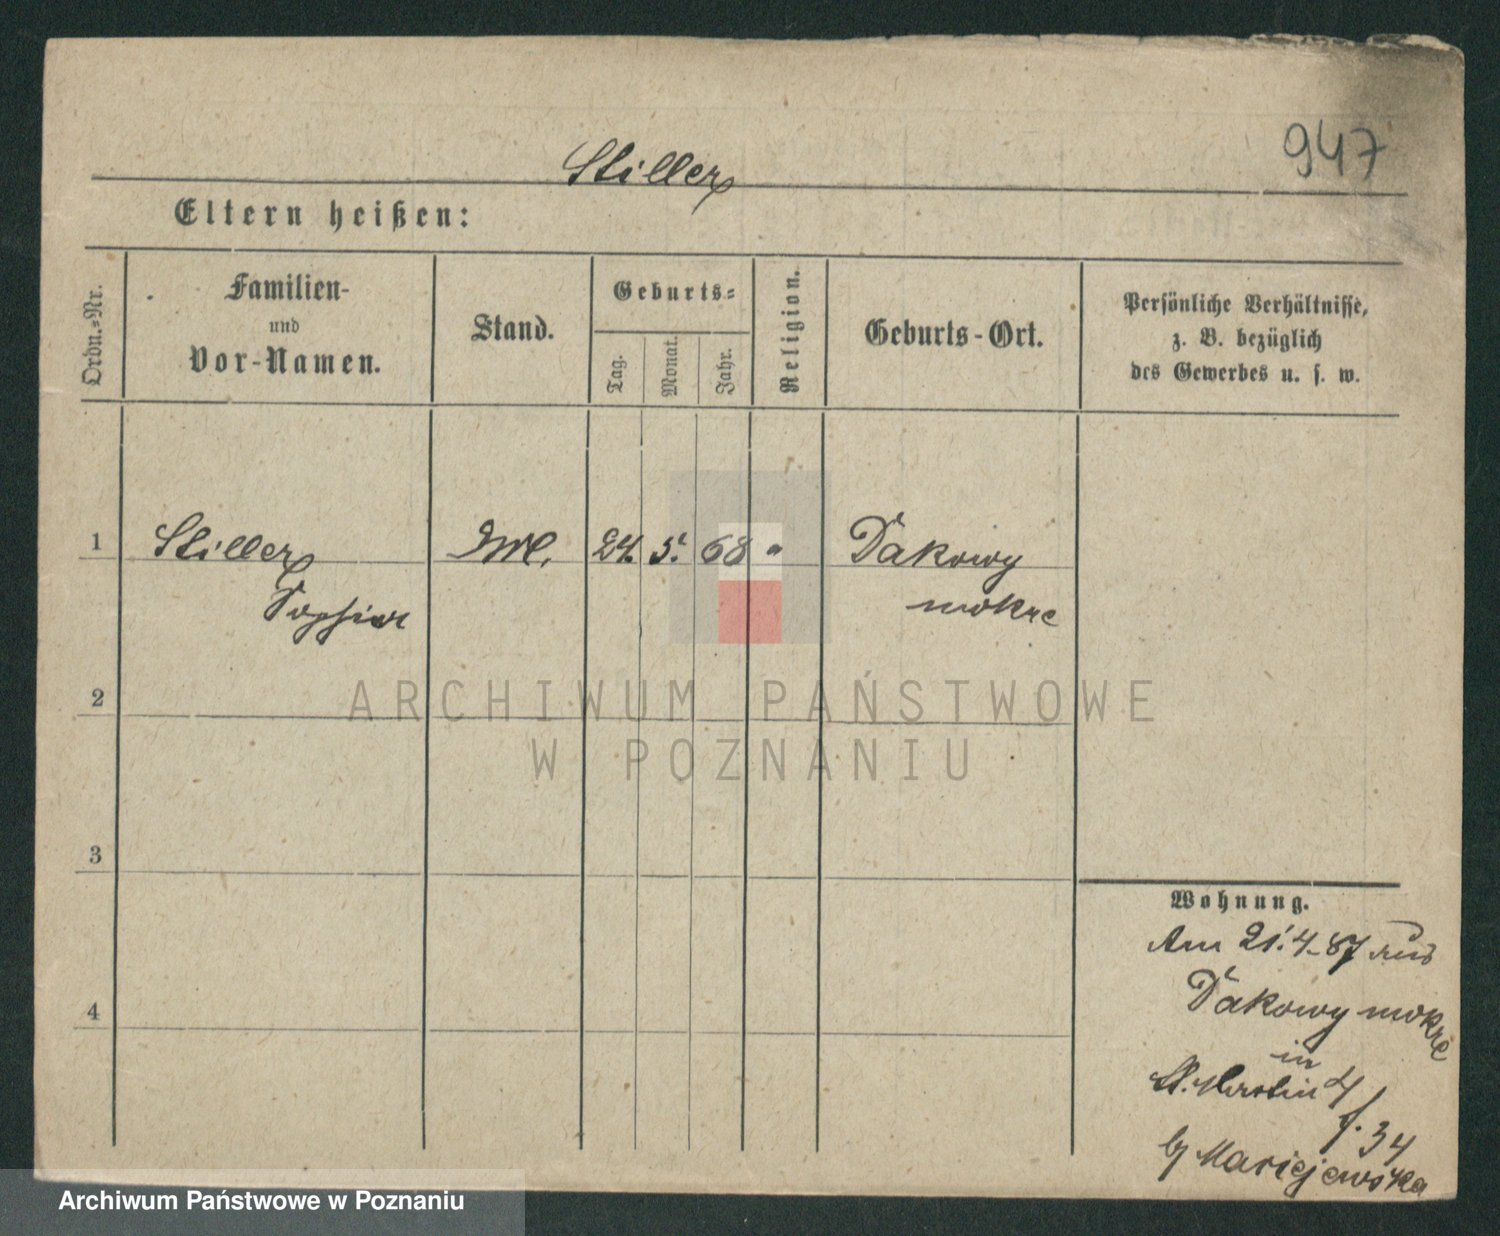 947
Stiller
Eltern heißen:
Ordn.=Nr.
Familien-
und
Vor-Namen.
Stand.
Geburts=
Tag.
Monat.
Jahr.
Religion.
Geburts-Ort.
Persönliche Verhältnisse,
z. B. bezüglich
des Gewerbes u. s. w.
1 Stiller 24. 5. 68 " Dakowy
Sophia mokre
2
3
4
Wohnung.
Am 21.4.87 aus
Dakowy mokre
in
St. Martin 4
f. 34
b/ Maciejewska
ARCHIWUM PAŃSTWOWE
W POZNANIU
Archiwum Państwowe w Poznaniu